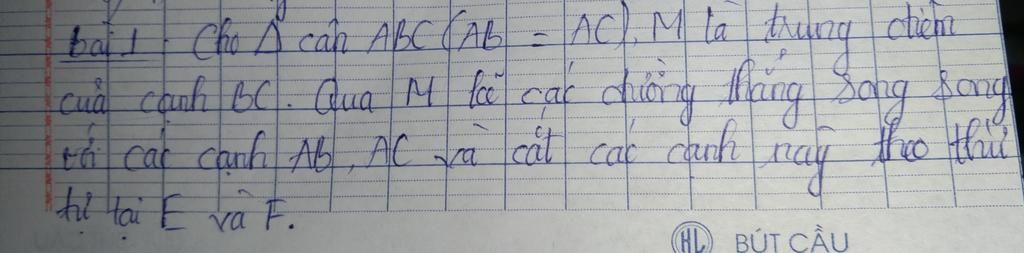 bài 1 : Cho Δ cân ABC (AB = AC), M là trung điểm
của cạnh BC. Qua M kẻ các đường thẳng song song
với các cạnh AB, AC và cắt các cạnh này theo thứ
tự tại E và F.
HL BÚT CẦU